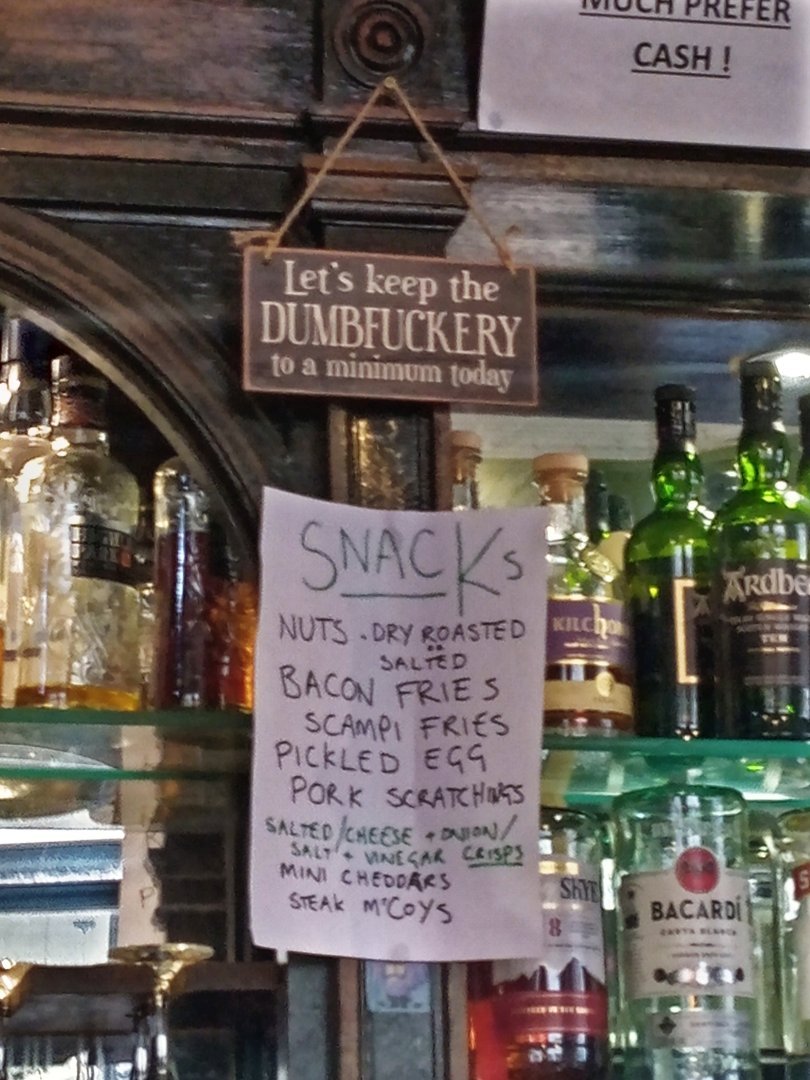 MUCH PREFER
CASH !
Let's keep the
DUMBFUCKERY
to a minimum today
SNACKS
NUTS . DRY ROASTED
" SALTED
BACON FRIES
SCAMPI FRIES
PICKLED EGG
PORK SCRATCHINGS
SALTED/CHEESE + ONION/
SALT + VINEGAR CRISPS
MINI CHEDDARS
STEAK M'COYS
KILCHO
ARDBE
TEN
SKYE
8
BACARDÍ
CARTA BLANCA